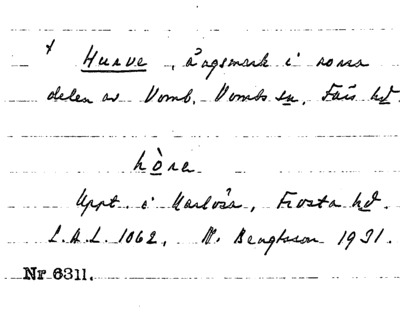 + Hurve, ångsmark i norra
delen av Vomb. Vombs sn, Färs hd.
hòra
Uppt. i Harlösa, Frosta hd.
L.A.L. 1062. N. Bengtsson 1931.
Nr 6311.